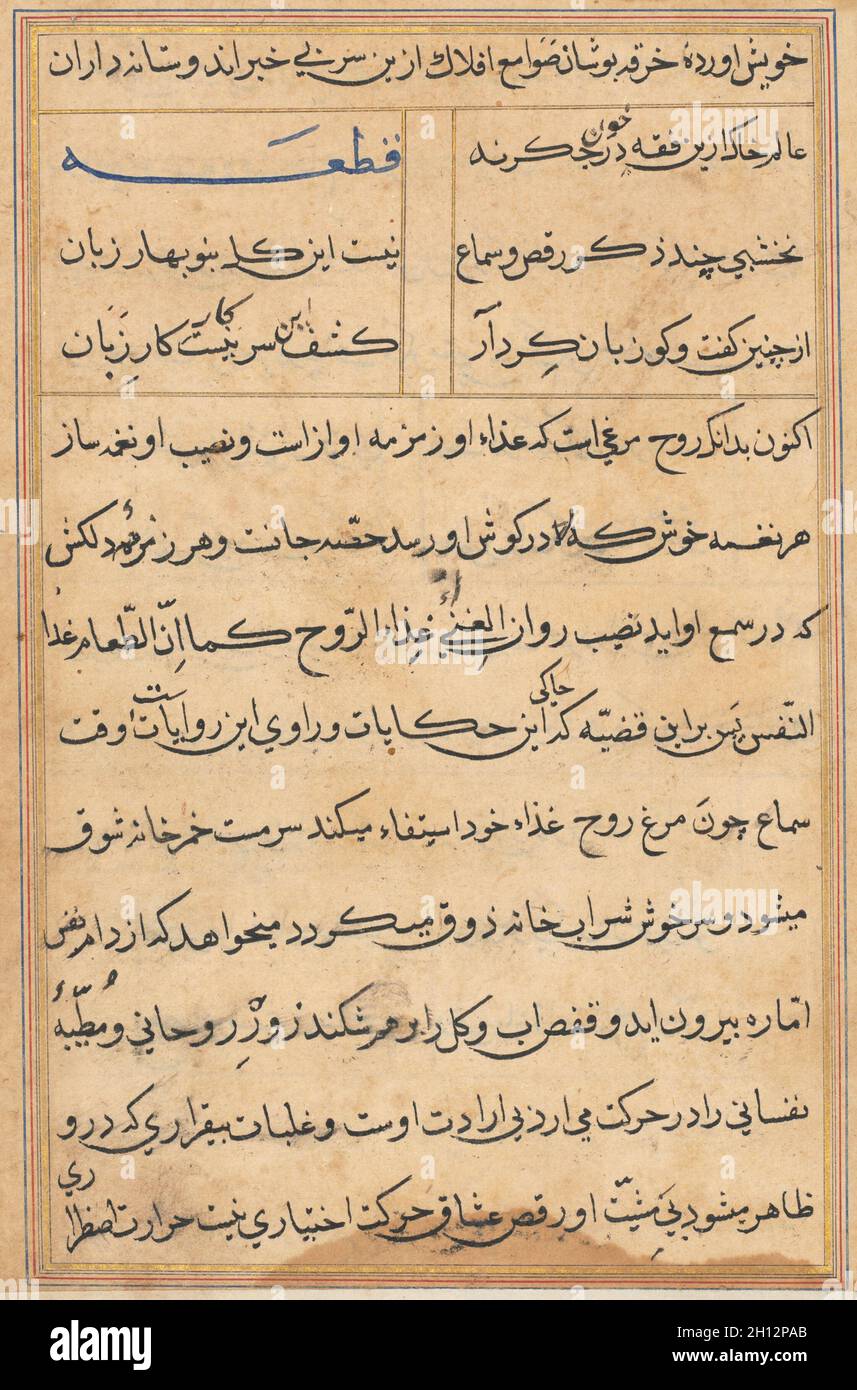 خویش اورده خرقه بوشان صوامع افلاک ازین سر بی خبر اند و ستانه داران
عالم خاک ازین فقه در خون جکرنه
قطعه
نخشبی چند ذکر رقص و سماع
نیست این کل بنو بهار زبان
از چنین کفت و کو زبان کرد آر
کشف این سر نیست کار زبان
اکنون بدانک روح مرغی است که غذاء او زمزمه اواز است و نصیب او نغمه ساز
هر نغمه خوش که در کوش او رسد حصه جانست و هر زمزمه دلکش
که در سمع او اید نصیب روان الغنی غذاء الروح کما ان الطعام غذا
النفس پس براین قضیه که حاکی این حکایات و راوی این روایات است وقت
سماع چون مرغ روح غذاء خود استیفاء میکند سرمست خمر خانه شوق
میشود و سرخوش شراب خانه ذوق میکردد میخواهد که از دام نفس
اماره بیرون اید و قفص اب و کل را بر هم شکند زور روحانی و مطیه
نفسانی را در حرکت می ارد بی ارادت اوست و غلبات بیقراری که درو
ظاهر میشود بی مشیت او رقص عشاق حرکت اختیاری نیست حرارت اضطراری
alamy
Image ID: 2H12PAB
www.alamy.com